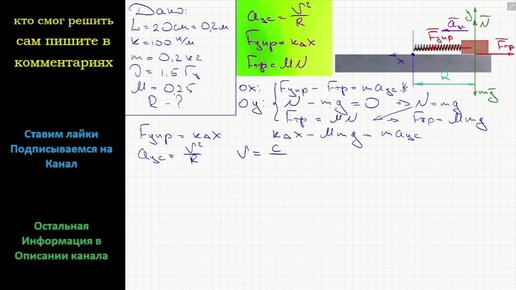 кто смог решить
сам пишите в
комментариях
Ставим лайки
Подписываемся на
Канал
Остальная
Информация в
Описании канала
Дано:
L=20см=0,2м
k=100 Н/м
m=0,2кг
ν=1.5Гц
μ=0,25
R-?
aцс = V²/R
Fупр = kΔx
Fтр = μN
ox: Fупр - Fтр = maцс
oy: N - mg = 0 => N = mg
Fтр = μN Fтр = μmg
Fупр = kΔx kΔx - μmg = maцс
aцс = V²/R V = C
y N
aцс
Fупр Fтр
x
R
mg